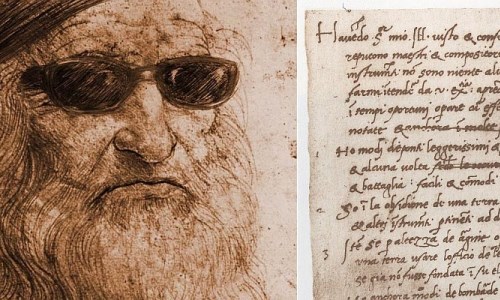 Havēdo S.r mio Ill. visto & cons
reputono maestri & compositor
instrumti nō sono niente alie
farmi intendere da v. ex: aprē
i tempi oportuni operare cū eff
notate & anchora i molte
Ho modi de ponti leggerissimi &
& alcuna volta
& battaglia: facili & comodi
So i la obsidione de una terra
& altri istrumti ptinēti ad d
3 Ite se p altezza de argine o
una terra usare l officio de le
se cia nō fusse fondata i su el
anchora modi de bombarde